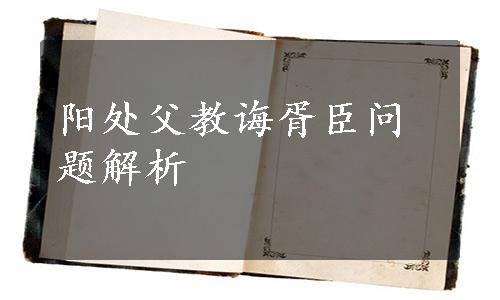 阳处父教诲胥臣问
题解析